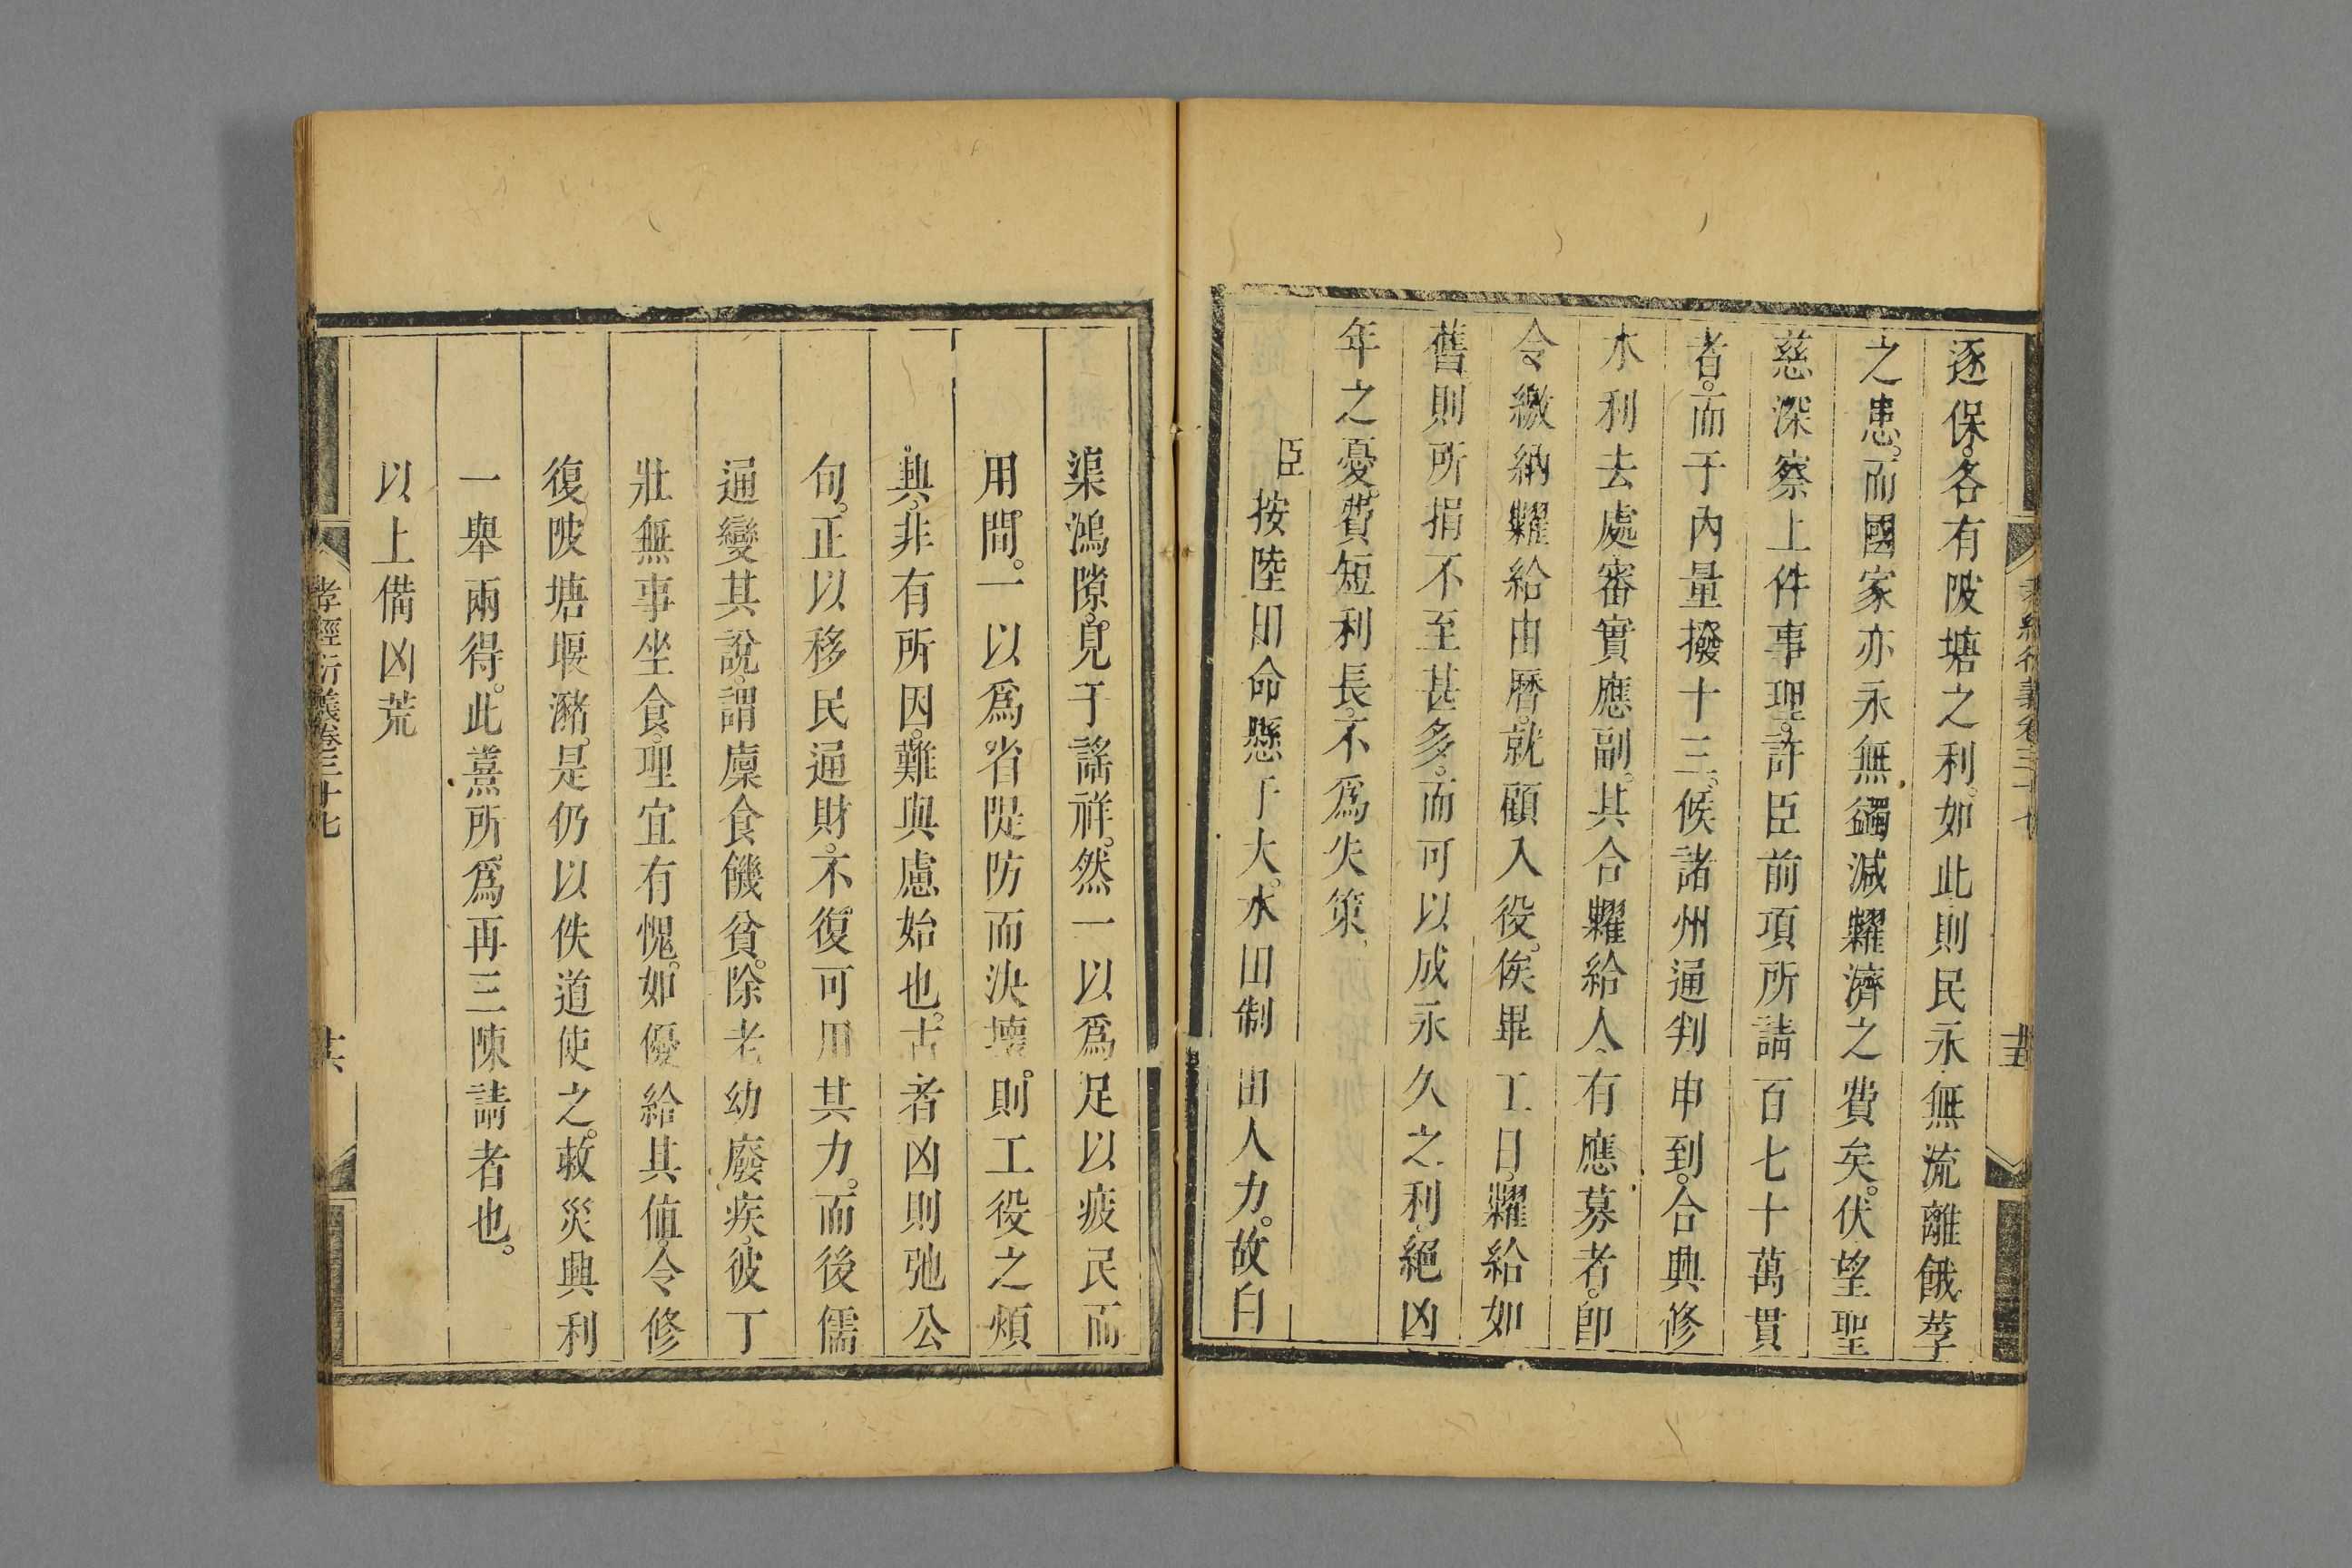 孝經衍義卷三十七
逐保。各有陂塘之利。如此則民永無流離餓莩
之患。而國家亦永無蠲減糶濟之費矣。伏望聖
慈深察上件事理。許臣前項所請百七十萬貫
者。而于內量撥十三。候諸州通判申到。合興修
水利去處審實應副。其合糶給人。有應募者。卽
令繳納糶給由曆。就顧入役。俟畢工日。糶給如
舊。則所捐不至甚多。而可以成永久之利。絕凶
年之憂。費短利長。不爲失策。
臣按陸田命懸于天。水田制由人力。故白
渠鴻隙。見于謠祥。然一以爲足以疲民而
用間。一以爲省隄防而決壞。則工役之煩
興。非有所因。難與慮始也。古者凶則弛公
旬。正以移民通財。不復可用其力。而後儒
通變其說。謂廩食饑貧。除老幼廢疾。彼丁
壯無事坐食。理宜有愧。如優給其値。令修
復陂塘堰瀦。是仍以佚道使之。救災興利
一舉兩得。此熹所爲再三陳請者也。
以上備凶荒
孝經衍義卷三十七